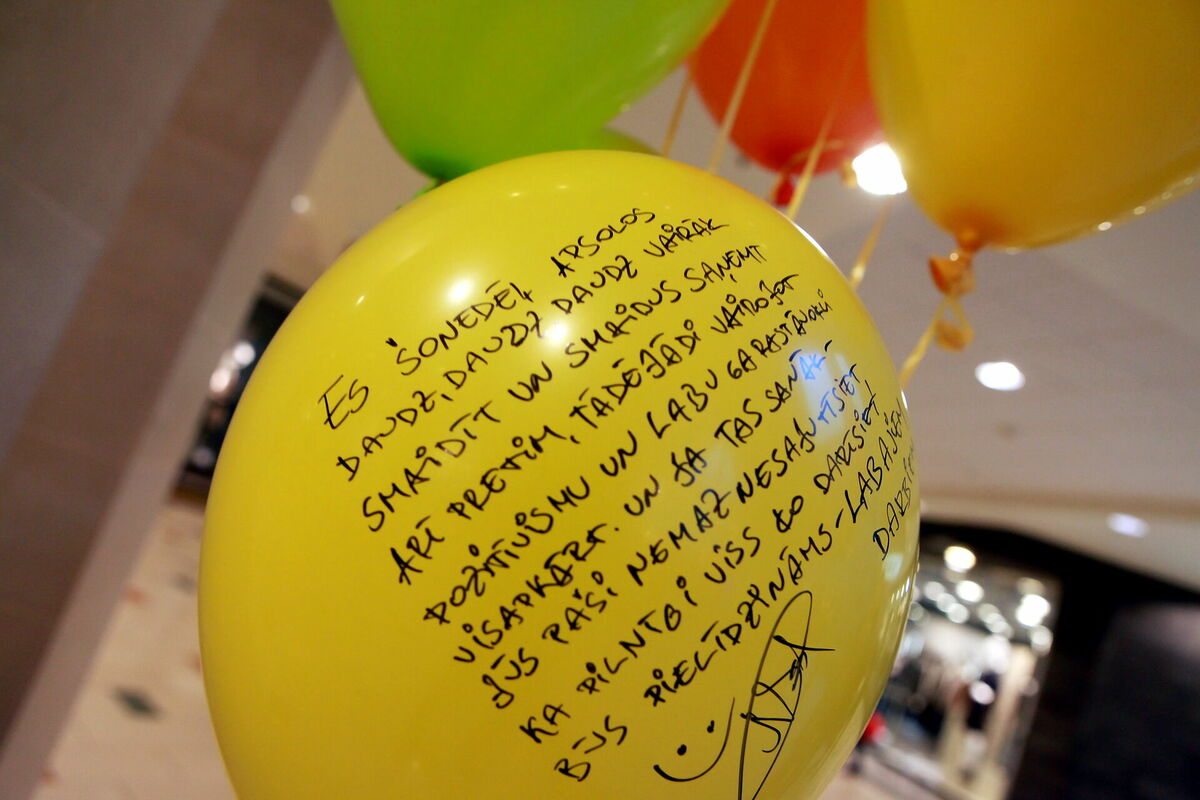 ES ŠONEDĒĻ APSOLOS
DAUDZ, DAUDZ, DAUDZ VAIRĀK
SMAIDĪT UN SMAIDUS SAŅEMT
ARĪ PRETIM, TĀDĒJĀDI VAIROJOT
POZITĪVISMU UN LABU GARASTĀVOKLI
VISAPKĀRT. UN JA TAS SANĀK-
JŪS PAŠI NEMAZ NESAJUTĪSIET,
KA PILNĪBĀ VISS KO DARĪSIET,
BŪS PIELĪDZINĀMS - LABAJIEM
DARBIEM